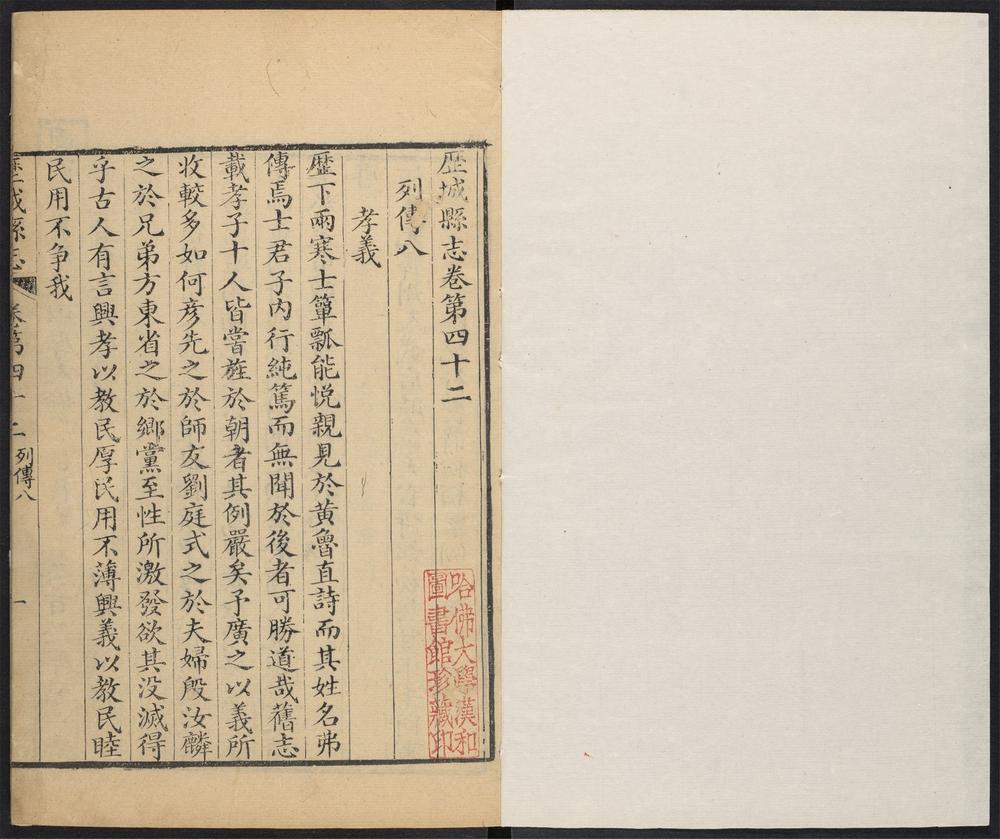 歴城縣志卷第四十二
列傳八
孝義
歷下兩寒士簞瓢能悅親見於黃魯直詩而其姓名弗
傳焉士君子內行純篤而無聞於後者可勝道哉舊志
載孝子十人皆嘗旌於朝者其例嚴矣予廣之以義所
收較多如何彥先之於師友劉庭式之於夫婦殷汝麟
之於兄弟方東省之於鄉黨至性所激發欲其没滅得
乎古人有言興孝以教民厚民用不薄興義以教民睦
民用不爭我
歷城縣志
卷第四十二
列傳八
一
哈佛大學漢和
圖書館珍藏印